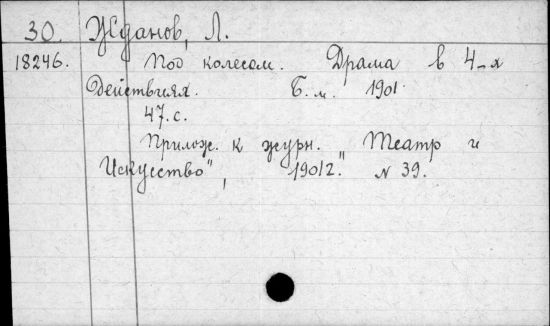 30. Жданов, Л.
18246. Под колесом. Драма в 4-х
Действиях. Б. м. 1901.
47. с.
Прилож. к журн. "Театр и
Искусство", 1901г. N 39.